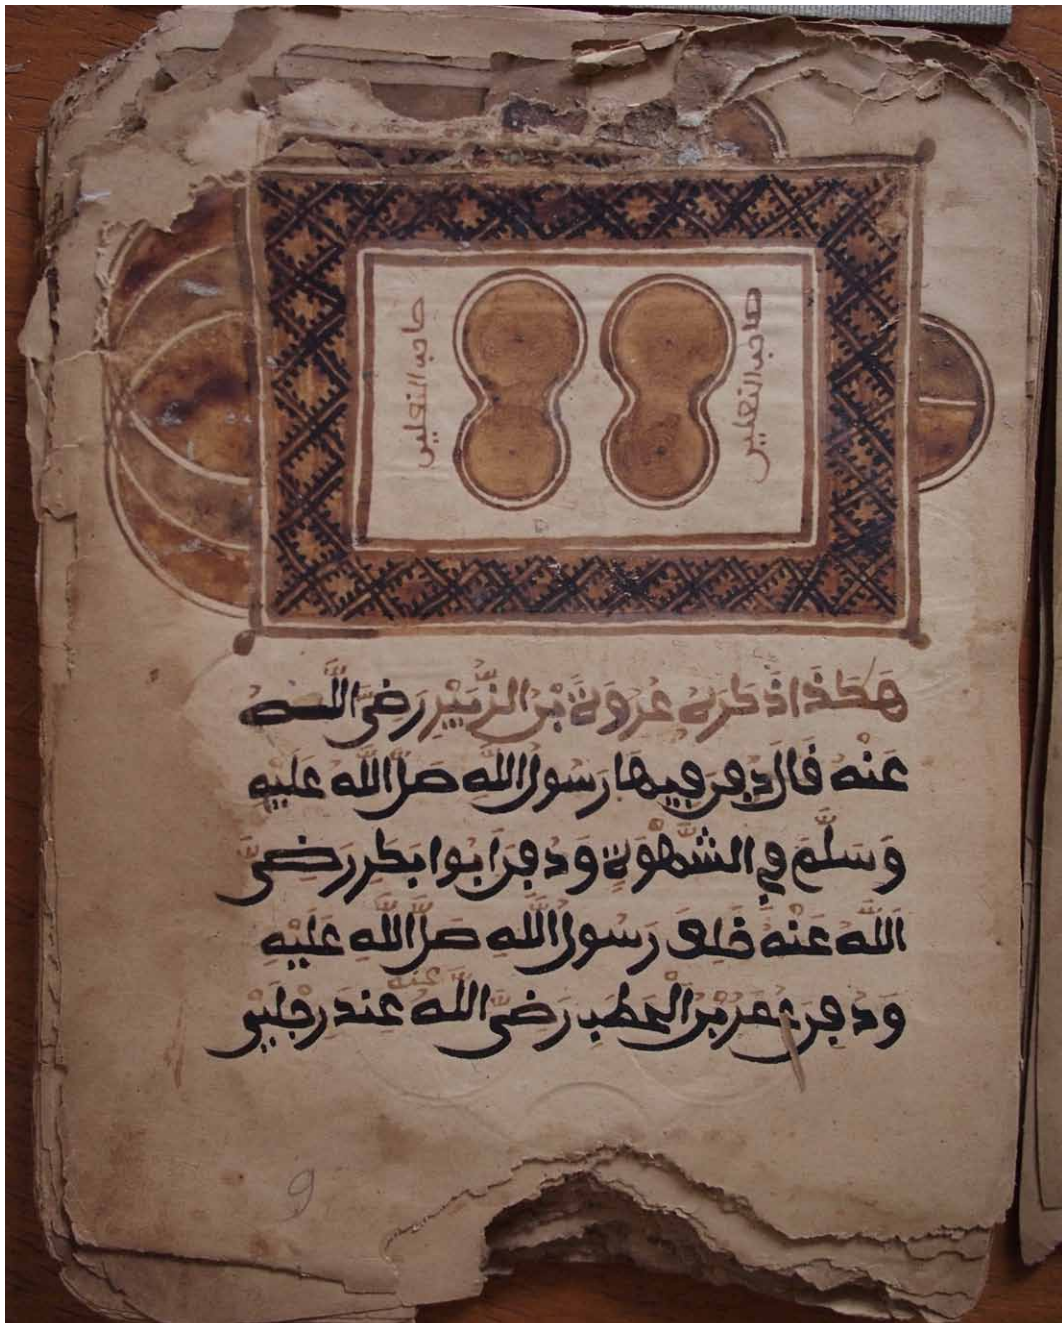 صاحب النعلين
صاحب النعلين
هَكَذَا ذَكَرَهُ عُرْوَةُ بْنُ الزُّبَيْرِ رَضِيَ اللَّهُ
عَنْهُ قَالَ دُفِنَ فِيهَا رَسُولُ اللَّهِ صَلَّى اللَّهُ عَلَيْهِ
وَسَلَّمَ فِي السَّهْوَةِ وَدُفِنَ ابُوا بَكْرٍ رَضِيَ
اللَّهُ عَنْهُ خَلْفَ رَسُولِ اللَّهِ صَلَّى اللَّهُ عَلَيْهِ
وَدُفِنَ عُمَرُ بْنُ الْخَطَبِ رَضِيَ اللَّهُ عَنْهُ عِنْدَ رِجْلَيْ
9